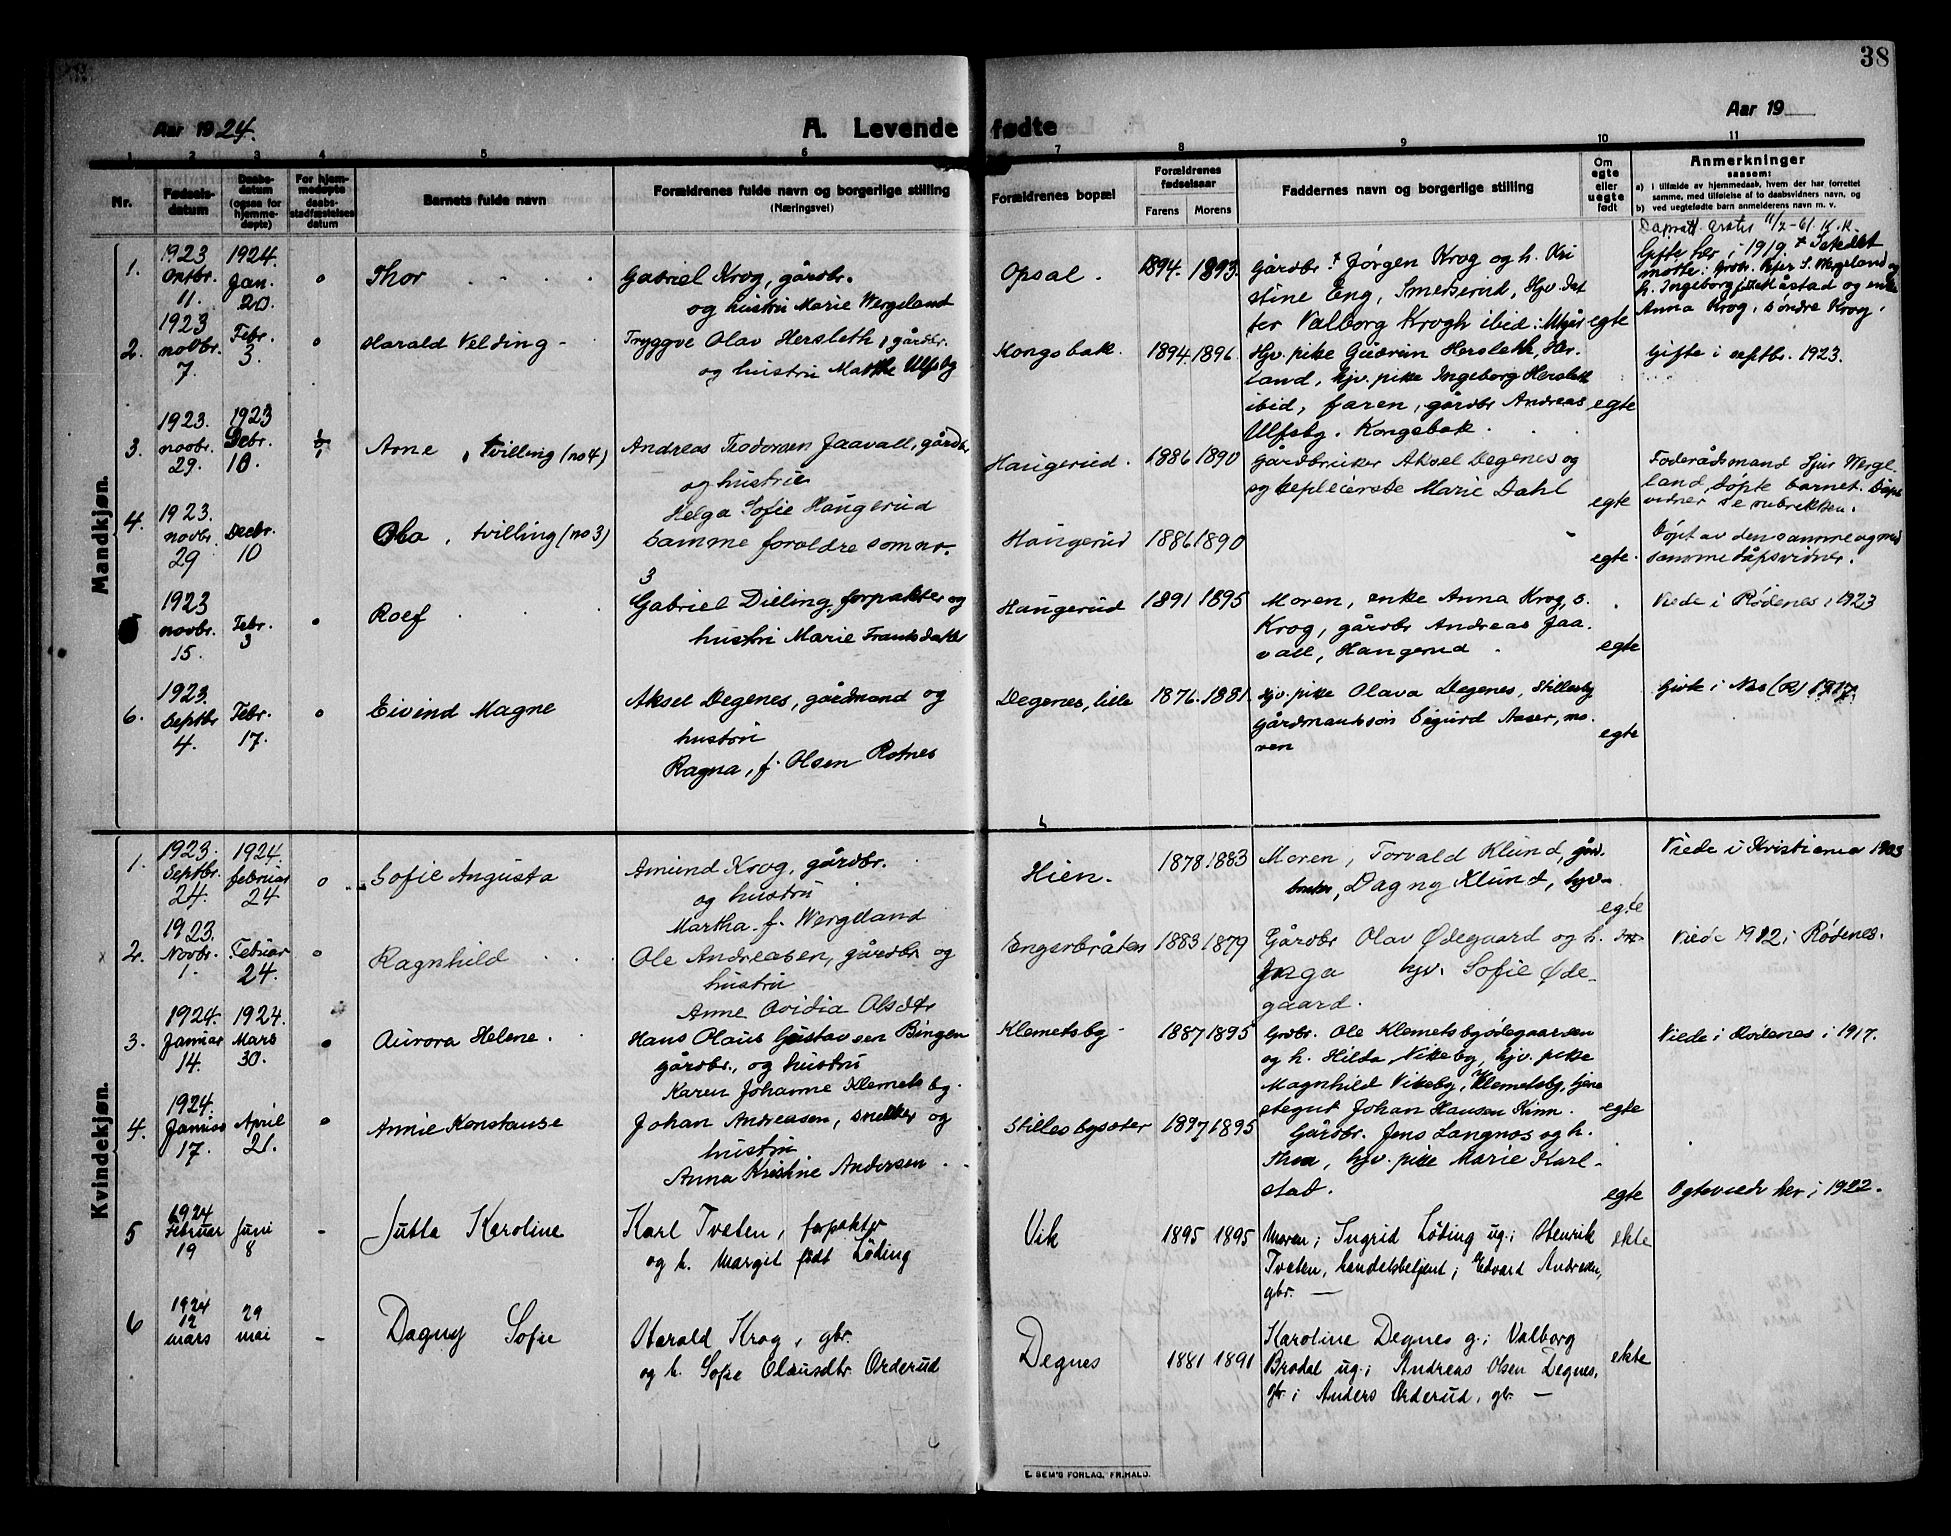 38
Aar 1924.
A. Levende fødte
Aar 19
1 2 3 4 5 6 7 8 9 10 11
Nr.
Fødsels-
datum
Daabs-
datum
(ogsaa for
hjemme-
døpte)
For hjem-
medøpte
daabs-
stadfæstelses
datum
Barnets fulde navn
Forældrenes fulde navn og borgerlige stilling
(Næringsvei)
Forældrenes bopæl
Forældrenes
fødselsaar
Farens Morens
Faddernes navn og borgerlige stilling
Om
egte
eller
uegte
født
Anmerkninger
saasom:
a) i tilfælde av hjemmedaab, hvem der har forrettet
samme, med tilføielse af to daabsvidners navn, og
b) ved uegtefødte barn anmelderens navn m. v.
Mandkjøn.
1.
1923
Oktbr.
11.
1924.
Jan.
20.
Thor
Gabriel Krog, gårdbr.
og hustru Marie Wergeland
Opsal.
1894. 1893.
Gårdbr. Jørgen Krog og h. Kri
stine Eng, Smeserud, Hjv. dat
ter Valborg Krogh ibid:
egte
Gifte her i 1919
h. Ingeborg
Anna Krog, søndre Krog.
2.
1923
novbr.
7.
Febr.
3
Harald Velding
Tryggve Olav Hersleth, gårdbr.
og hustru Marthe Ulfsby
Kongsbak.
1894. 1896.
Hjv. pike Gudrun Hersleth, Hær
land, hjv. pike Ingeborg Hersleth
ibid, faren, gårdbr Andreas
Ulfsby. Kongsbak.
egte
Gifte i septbr. 1923.
3.
1923.
novbr.
29.
1923
Debr.
10.
Arne, tvilling (no 4)
Andreas Teodorsen Jaavall, gårdbr
og hustru
Helga Sofie Haugerud
Haugerud.
1886 1890
Gårdbruker Aksel Degenes og
sykepleierske Marie Dahl
egte
Føderådsmand Sjur Werge
land, døpte barnet. Dåps
vidner se rubrikken.
4.
1923.
novbr.
29
Decbr.
10
Ola, tvilling (no 3)
Samme foreldre som nr.
3
Haugerud
1886 1890
egte.
Døpt av den samme og med
samme dåpsvidner.
1923
novbr.
15.
Febr.
3
Rolf
Gabriel Dieling, forpakter og
hustru Marie Fransdatter
Haugerud
1891 1895
Moren, enke Anna Krog, s.
Krog, gårdbr Andreas Jaa
vall, Haugerud
egte
Viede i Rødenes i 1923
6.
1923.
Septbr
4.
Febr.
17.
Eivind Magne
Aksel Degenes, gårdmand og
hustru
Ragna, f. Olsen Rotnes
Degenes, lille
1876. 1881.
Hjv. pike Olava Degenes, Stillesby
gårdmandssøn Sigurd Aaser, mo
ren
egte
Givte i Nes (R) 1917.
Kvindekjøn.
1.
1923.
Septbr.
24.
1924.
februar
24
Sofie Augusta
Amund Krog, gårdbr.
og hustru
Martha f. Wergeland
Hien.
1878 1883
Moren, Torvald Klund, gård
bruker, Dagny Klund, hjv.
egte
Viede i Kristiania 1903
2.
1923.
Novbr.
1.
Februar
24.
Ragnhild
Ole Andreasen, gårdbr og
hustru
Anne Ovidia Olsdtr
Engerbråten
1883 1879
Gårdbr Olav Ødegaard og h.
Inga hjv. Sofie Øde-
gaard.
Viede 1912 i Rødenes.
3.
1924.
Januar
14.
1924.
Mars
30.
Aurora Helene.
Hans Olaus Gustavsen Bingen
gårdbr., og hustru
Karen Johanne Klemetsby.
Klemetsby
1887 1895
Grdbr. Ole Klemetsbyødegaarden
og h. Hilda Vikeby, hjv. pike
Magnhild Vikeby, Klemetsby, tjene
stegut Johan Hansen Kinn.
egte
Viede i Rødenes i 1917.
4.
1924.
Januar
17.
April
21.
Annie Konstanse
Johan Andreasen, snekker og
hustru
Anna Kristine Andersen
Stillesbysæter
1897 1895
Gårdbr. Jens Langnes og h.
Thea, hjv. pike Marie Karl-
stad.
egte
Ogteviede her i 1922.
5
1924
Februar
19
Juni
8
Jutta Karoline
Karl Tveten, forpakter
og h. Margit født Løding
Vik
1895 1895
Moren; Ingrid Løding ug.; Henrik
Tveten, handelsbetjent; Edvart Andresen,
gbr. —
ekte
6
1924
12
mars
29
mai
Dagny Sofie
Harald Krog, gbr.
og h. Sofie Olausdtr. Orderud
Degnes
1881 1891
Karoline Degnes g.; Valborg
Brødal ug.; Andreas Olsen Degnes,
gbr; Anders Orderud, gbr. —
ekte
E. SEM'S FORLAG, FR.HALD.